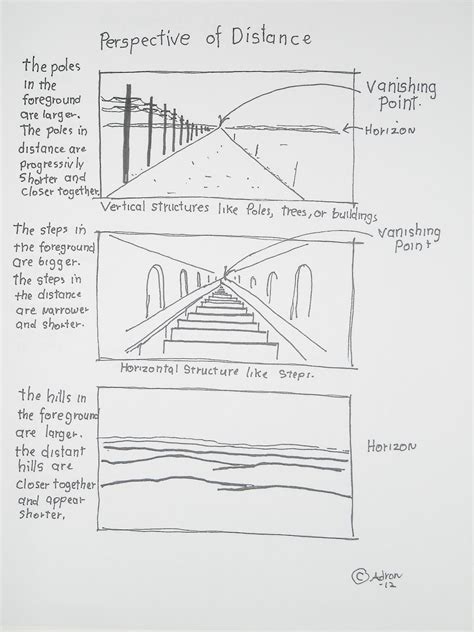 Perspective of Distance
The poles
in the
foreground
are larger.
The poles in
distance are
progressivly
shorter and
closer together.
Vanishing
Point.
Horizon
Vertical structures like Poles, trees, or buildings
The steps in
the foreground
are bigger.
The steps in
the distance
are narrower
and shorter.
Vanishing
Point
Horizontal structure like steps.
the hills in
the foreground
are larger.
the distant
hills are
closer together
and appear
shorter.
Horizon
© Adron
-12